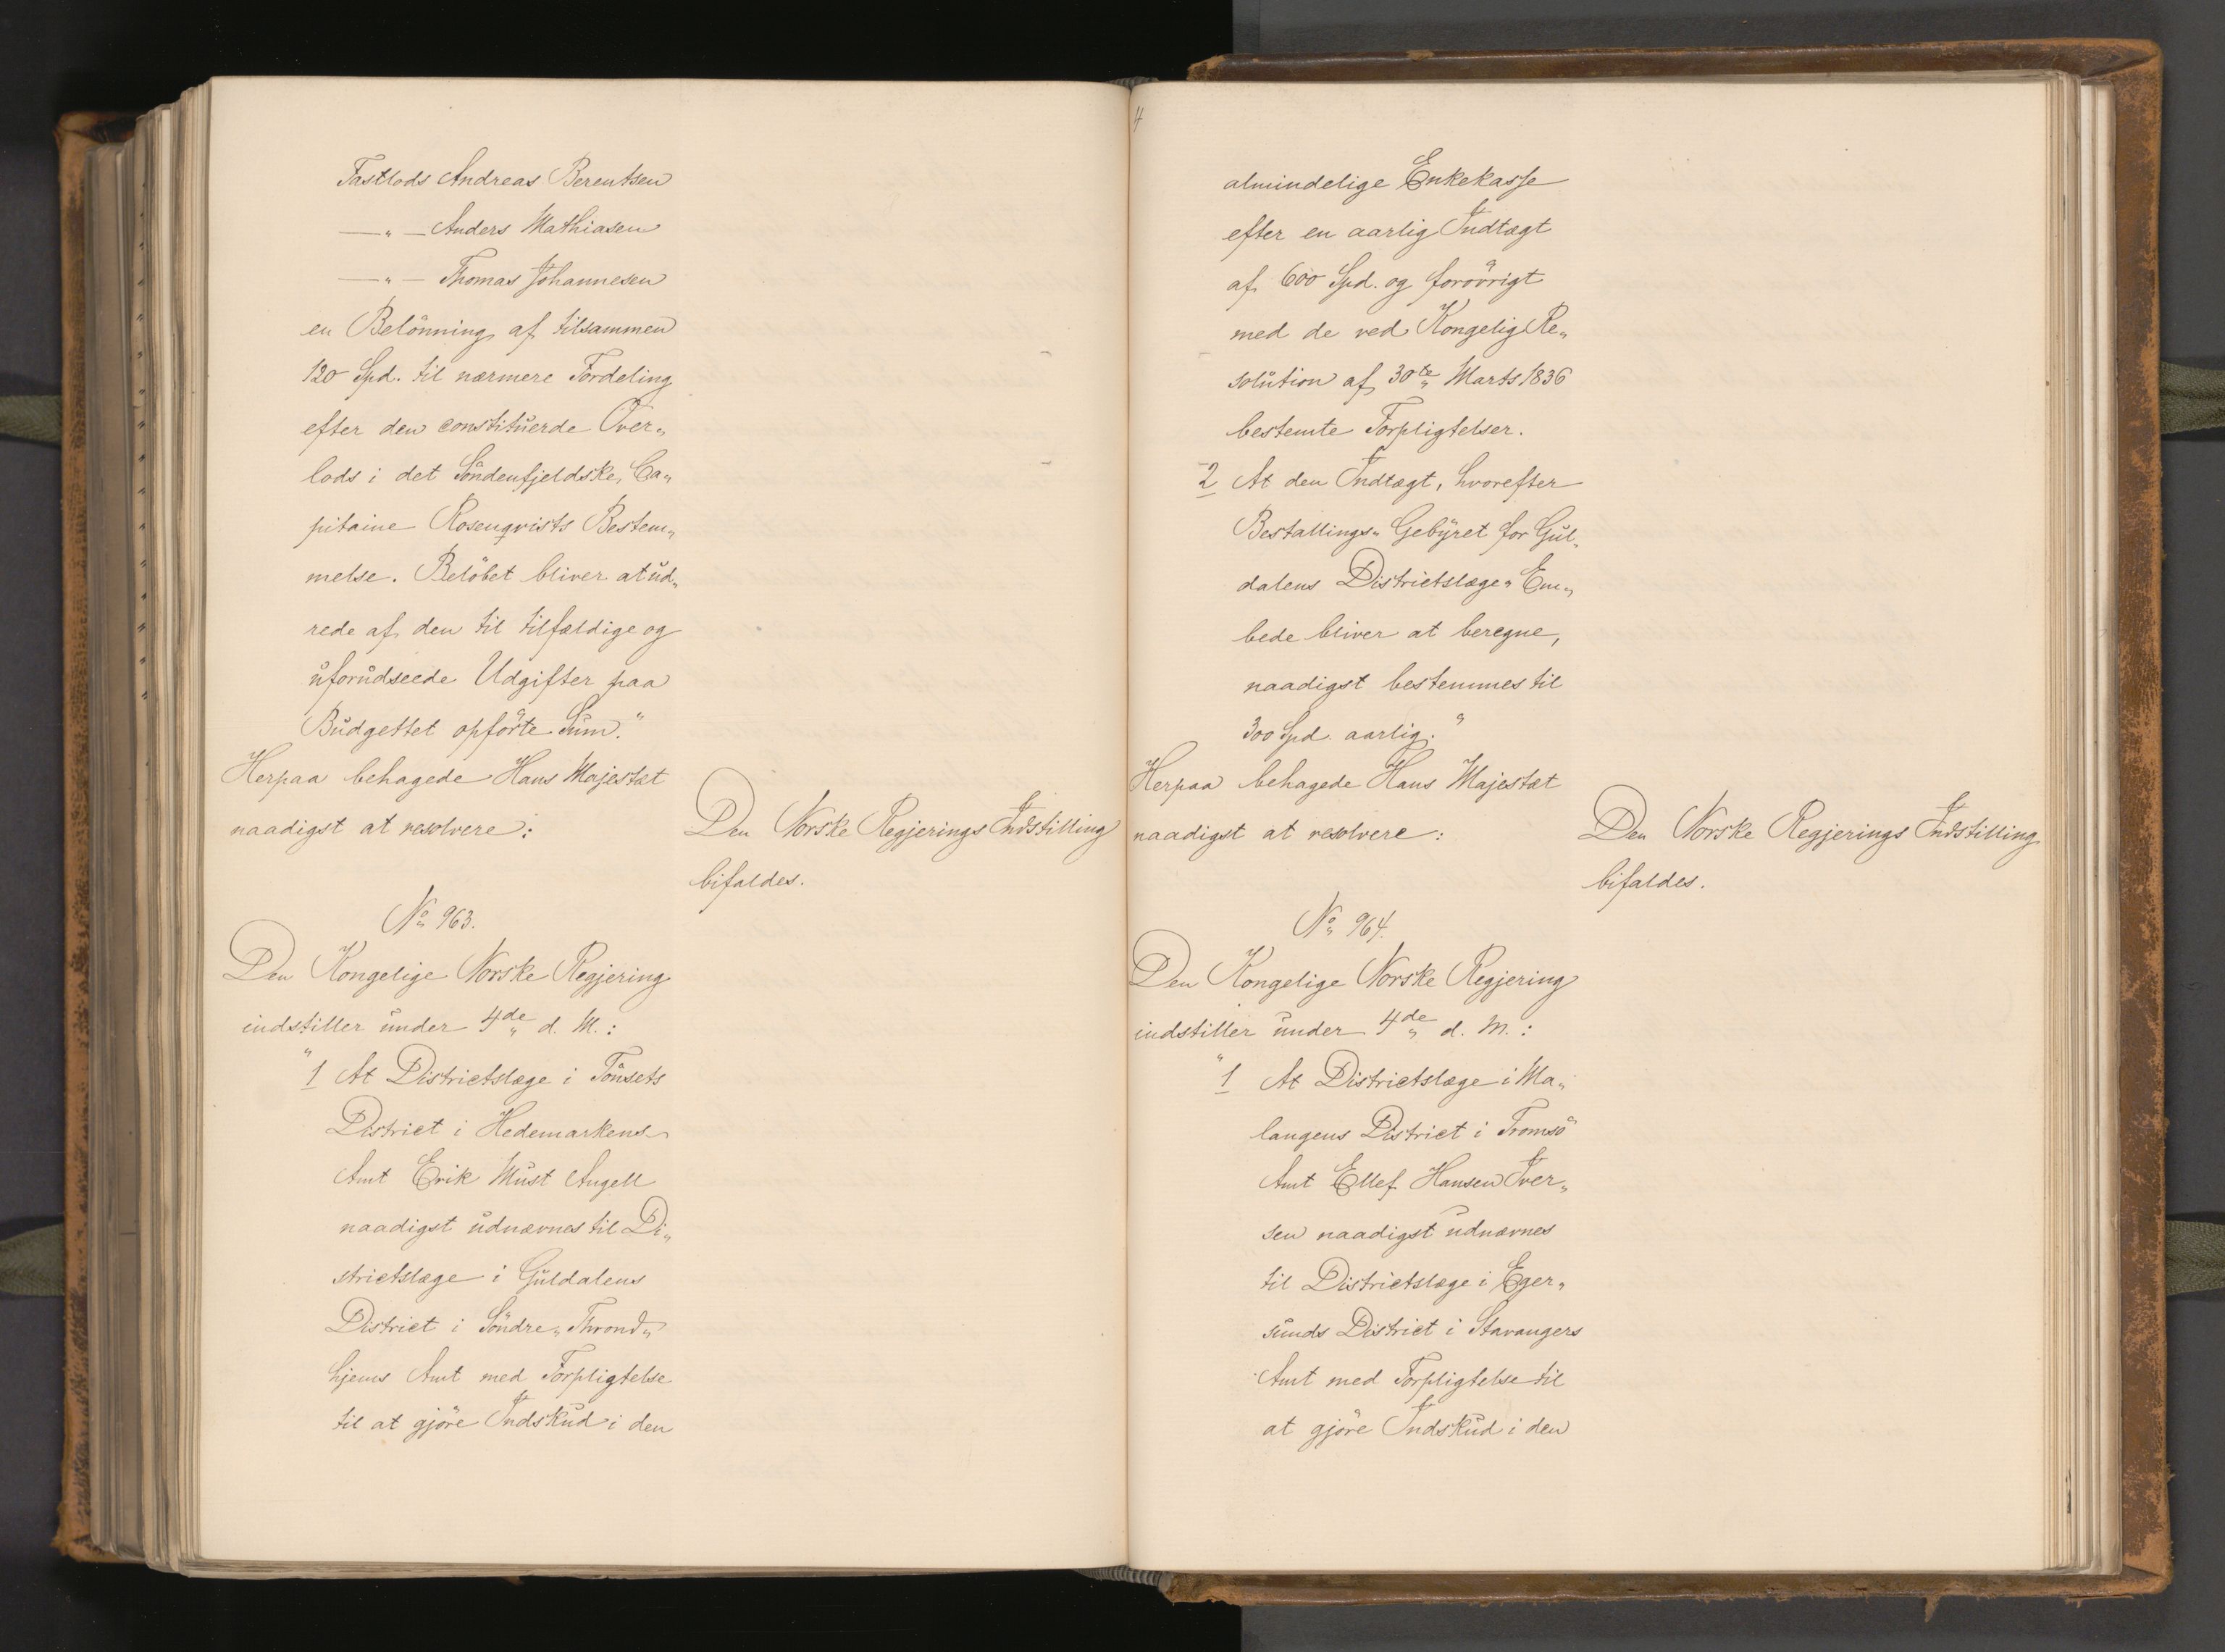 Fastlods Andreas Berentsen
—„— Anders Mathiasen
—„— Thomas Johannesen
en Belönning af tilsammen
120 Spd. til nærmere Fordeling
efter den constituerde Over„
lods i det Söndenfjeldske, Ca„
pitaine Rosenqvists Bestem„
melse. Belöbet bliver at ud„
rede af den til tilfældige og
uforudseede Udgifter paa
Budgettet opförte Sum."
Herpaa behagede Hans Majestæt
naadigst at resolvere:
Den Norske Regjerings Indstilling
bifaldes.
No 963.
Den Kongelige Norske Regjering
indstiller under 4de d. M.:
"1 At Districtslæge i Tönsets
District i Hedemarkens
Amt Erik Must Angell
naadigst udnævnes til Di„
strictslæge i Guldalens
District i Söndre„Thrond„
hjems Amt med Forpligtelse
til at gjöre Indskud i den
almindelige Enkekasse
efter en aarlig Indtægt
af 600 Spd. og forövrigt
med de ved Kongelig Re„
solution af 30te Marts 1836
bestemte Forpligtelser.
2 At den Indtægt, hvorefter
Bestallings„Gebyret for Gul„
dalens Districtslæge„Em„
bede bliver at beregne,
naadigst bestemmes til
300 Spd. aarlig."
Herpaa behagede Hans Majestæt
naadigst at resolvere:
Den Norske Regjerings Indstilling
bifaldes.
No 964.
Den Kongelige Norske Regjering
indstiller under 4de d. M.:
"1 At Districtslæge i Ma„
langens District i Tromsö
Amt Ellef Hansen Iver„
sen naadigst udnævnes
til Districtslæge i Eger„
sunds District i Stavangers
Amt med Forpligtelse til
at gjöre Indskud i den